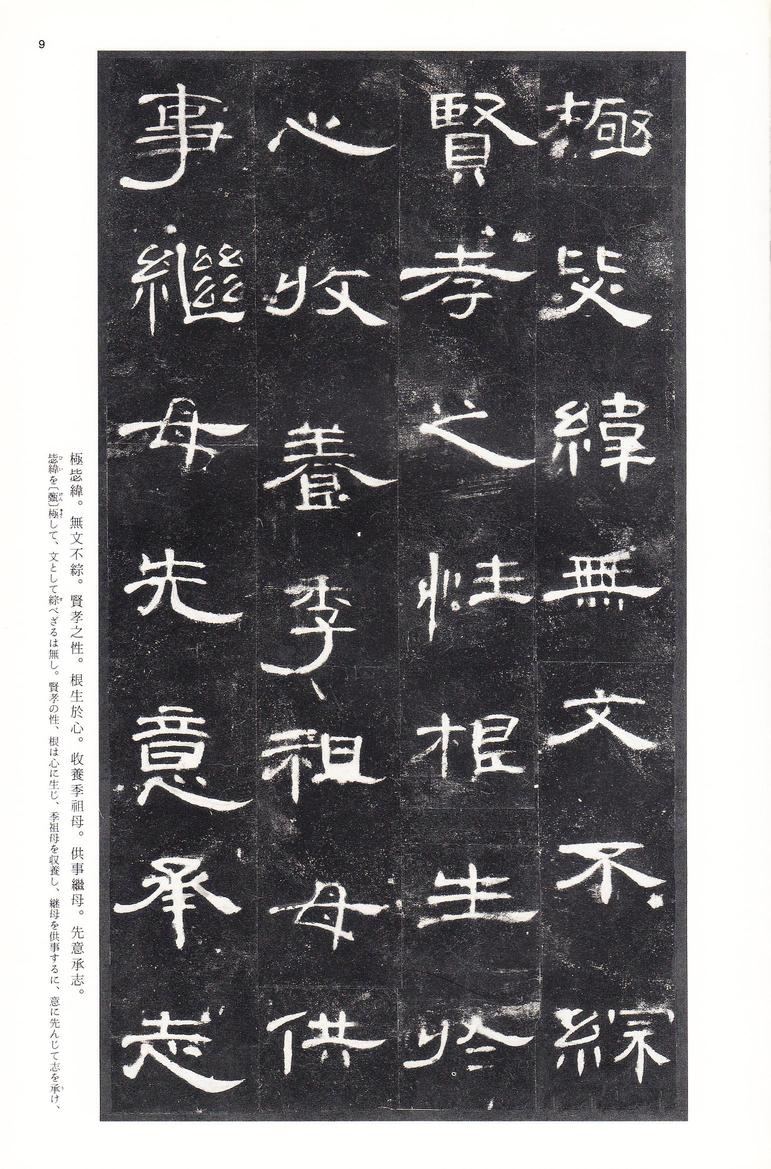 9
極毖緯無文不綜
賢孝之性根生於
心收養季祖母供
事繼母先意承志
極毖緯。無文不綜。賢孝之性。根生於心。收養季祖母。供事繼母。先意承志。
毖緯を〔甄〕極して、文として綜べざるは無し。賢孝の性、根は心に生じ、季祖母を収養し、継母を供事するに、意に先んじて志を承け、